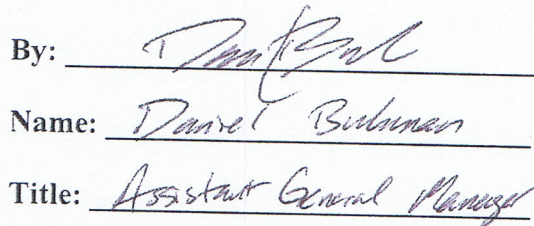 By:
Name: Daniel
Title: Assistant General Manager